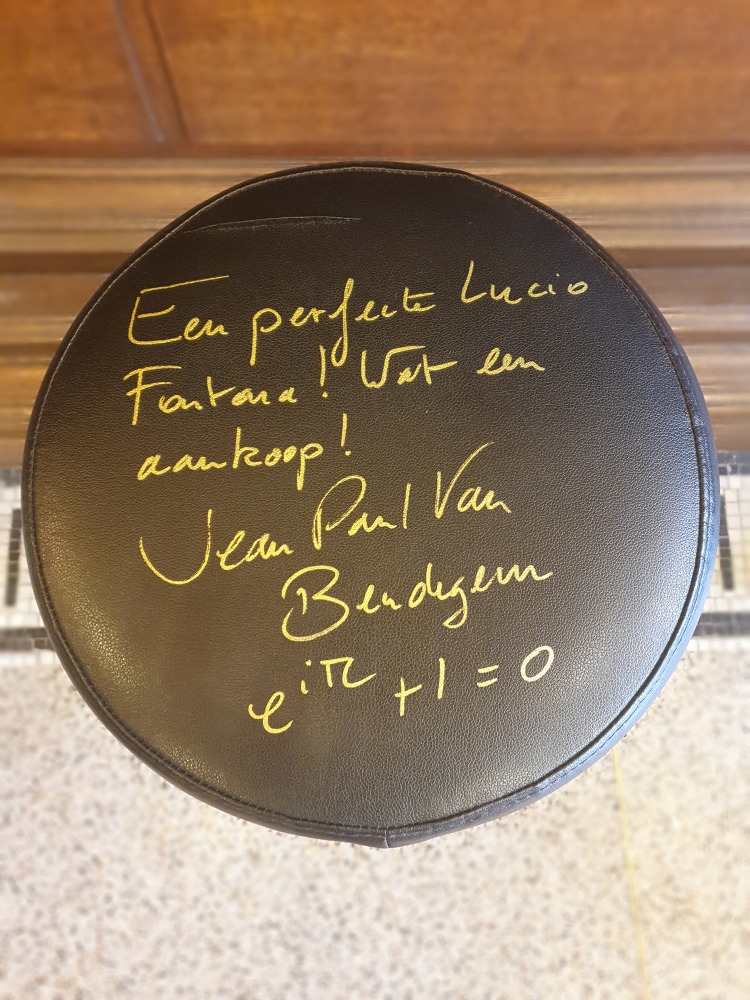 Een perfecte Lucio
Fontana! Wat een
aankoop!
Jean Paul Van
Bendegem
e^{iπ} + 1 = 0